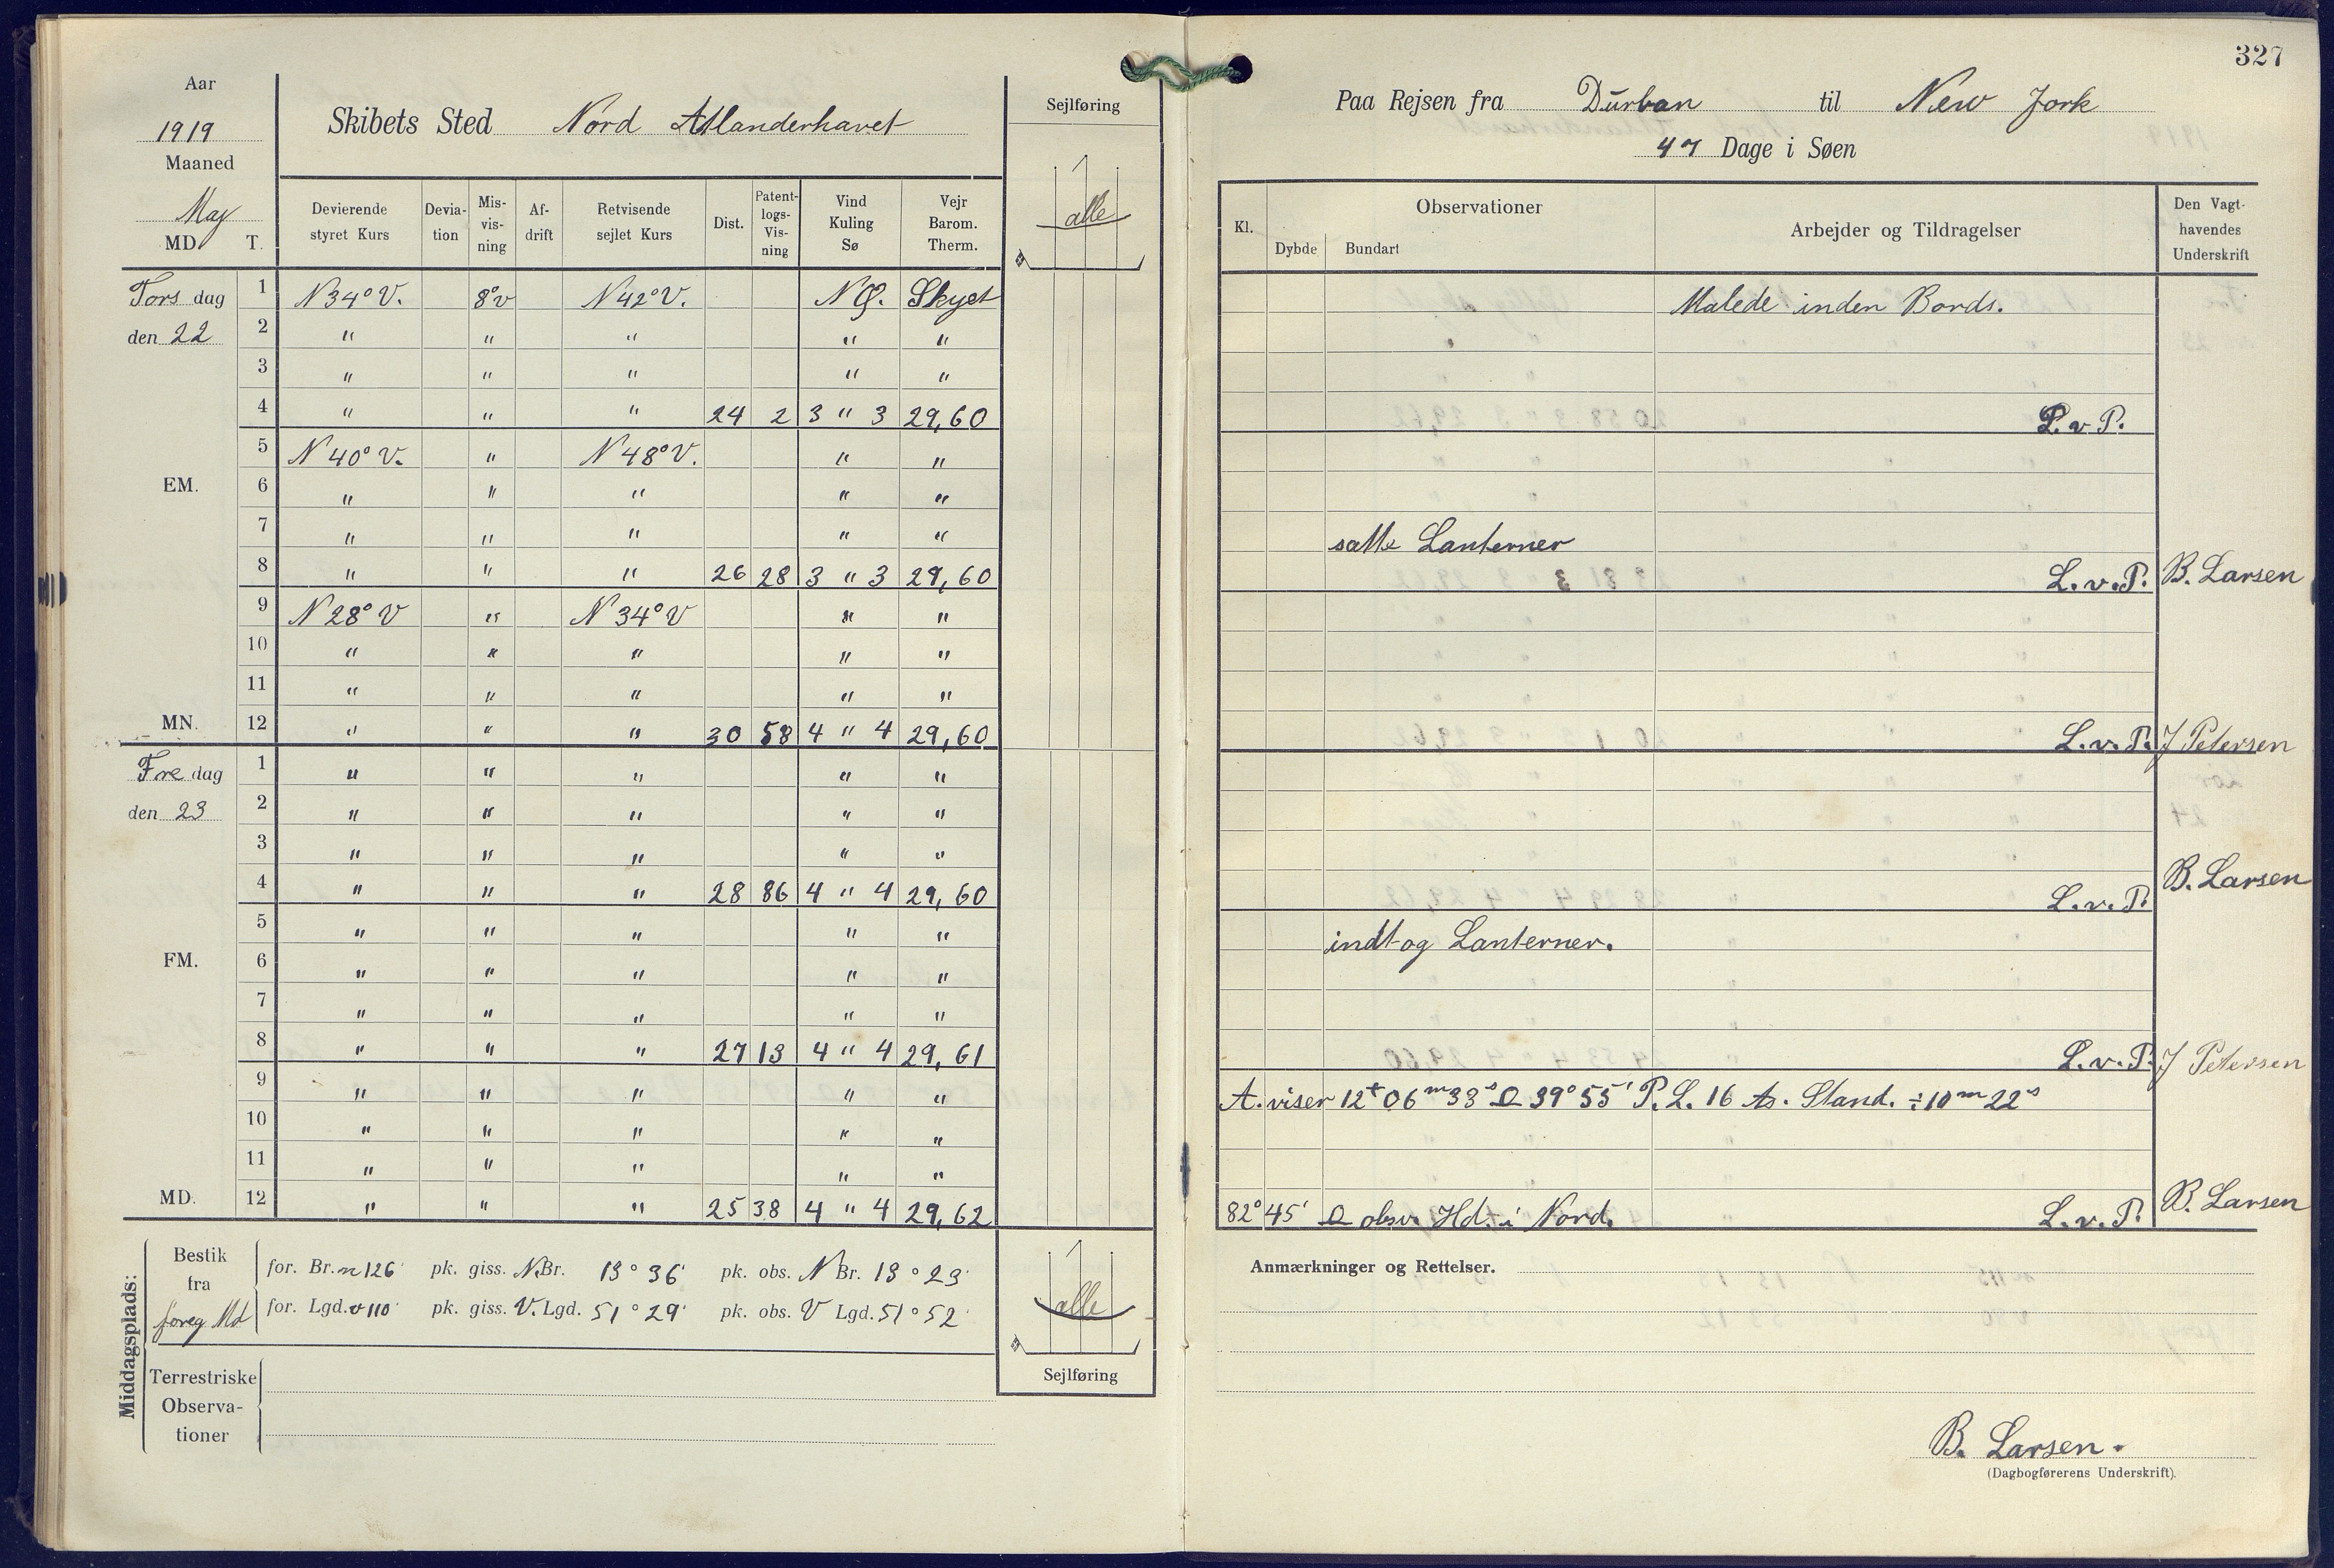 327
Aar
1919
Maaned
Maj
MD. T.
Skibets Sted Nord Atlanderhavet
Sejlføring
alle
Paa Rejsen fra Durban til New Jork
47 Dage i Søen
Devierende styret Kurs | Devia-tion | Mis-vis-ning | Af-drift | Retvisende sejlet Kurs | Dist. | Patent-logs-Vis-ning | Vind Kuling Sø | Vejr Barom. Therm.
Kl. | Observationer | Dybde | Bundart | Arbejder og Tildragelser | Den Vagt-havendes Underskrift
Tors dag 1 N 34° V. 8° v N 42° V. N Ø. Skyet Malede inden Bords.
den 22 2 " " " " "
3 " " " " "
4 " " " 24 2 3 " 3 29,60 L. v. P.
5 N 40° V. " N 48° V. " "
EM. 6 " " " " "
7 " " " " " satte Lanterner
8 " " " 26 28 3 " 3 29,60 L. v. P. B. Larsen
9 N 28° V " N 34° V " "
10 " " " " "
11 " " " " "
MN. 12 " " " 30 58 4 " 4 29,60 L. v. P. J Petersen
Fre dag 1 " " " " "
den 23 2 " " " " "
3 " " " " "
4 " " " 28 86 4 " 4 29,60 L. v. P. B. Larsen
5 " " " " " indtog Lanterner.
FM. 6 " " " " "
7 " " " " "
8 " " " 27 13 4 " 4 29,61 L. v. P. J Petersen
9 " " " " " A. viser 12 06 m 33 s 39° 55' P. L. 16 Stand. ÷ 10 m 22 s
10 " " " " "
11 " " " " "
MD. 12 " " " 25 38 4 " 4 29,62 82° 45' obsv. Hd. i Nord. L. v. P. B. Larsen
Middagsplads:
Bestik fra foreg Md
for. Br. n 126' pk. giss. N. Br. 13° 36' pk. obs. N Br. 13° 23'
for. Lgd. v 110' pk. giss. V. Lgd. 51° 29' pk. obs. V Lgd. 51° 52'
Terrestriske Observa-tioner
alle
Sejlføring
Anmærkninger og Rettelser.
B. Larsen.
(Dagbogførerens Underskrift).